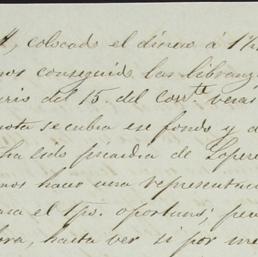 , colocado el dinero á 1
nos conseguido las libranz
ris del 15. del corrte. veras
nota se cubra ese fondo y d
ha sido picardia de Lopere
mos hacer una representaci
ara el tpo. oportuno; per
ora, hasta ver si por me